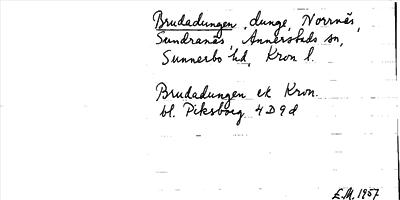 Brudadungen, dunge, Norrnäs,
Sundranäs, Annerstads sn,
Sunnerbo hd, Kron l.
Brudadungen ek Kron.
bl. Piksborg 4D9d
E.M. 1957